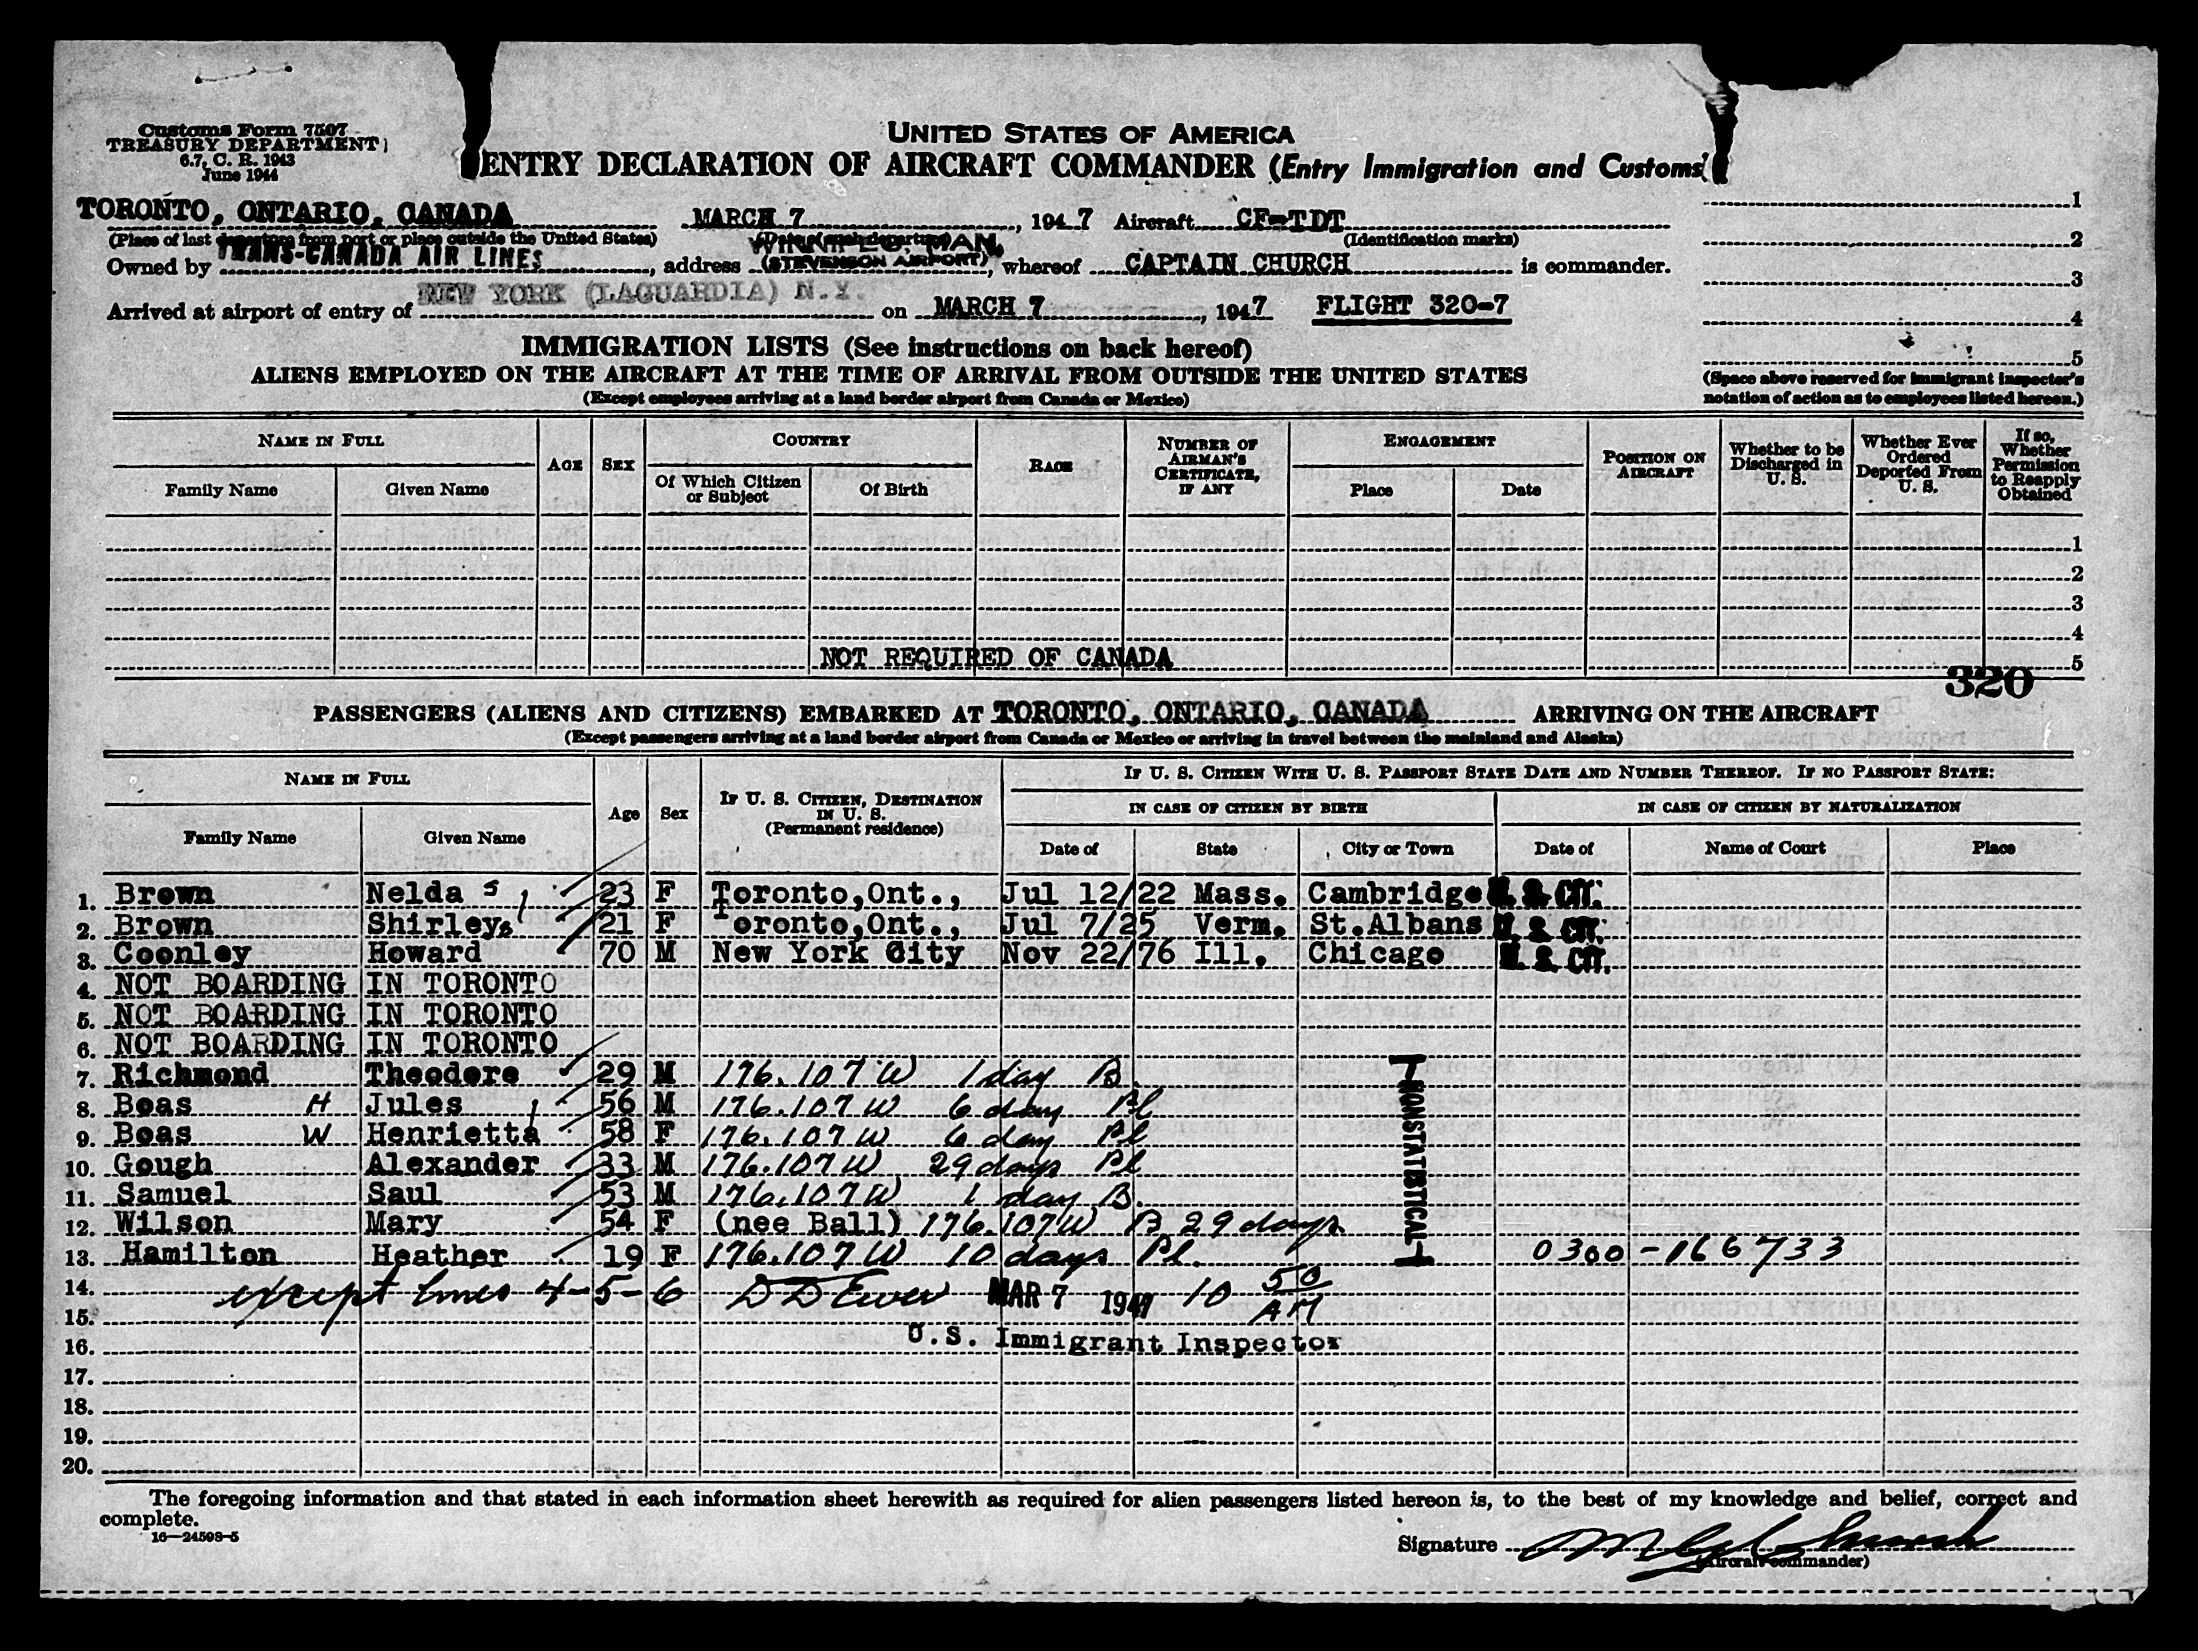 Customs Form 7507
TREASURY DEPARTMENT
6.7, C. R. 1943
June 1944
UNITED STATES OF AMERICA
ENTRY DECLARATION OF AIRCRAFT COMMANDER (Entry Immigration and Customs)
TORONTO, ONTARIO, CANADA MARCH 7, 1947 Aircraft CF-TDT
(Place of last departure from port or place outside the United States) (Identification marks)
Owned by TRANS-CANADA AIR LINES, address (STEVENSON AIRPORT), whereof CAPTAIN CHURCH is commander.
Arrived at airport of entry of NEW YORK (LAGUARDIA) N.Y. on MARCH 7, 1947 FLIGHT 320-7
1
2
3
4
5
(Space above reserved for immigrant inspector's notation of action as to employees listed hereon.)
IMMIGRATION LISTS (See instructions on back hereof)
ALIENS EMPLOYED ON THE AIRCRAFT AT THE TIME OF ARRIVAL FROM OUTSIDE THE UNITED STATES
(Except employees arriving at a land border airport from Canada or Mexico)
NAME IN FULL
Family Name
Given Name
AGE
SEX
COUNTRY
Of Which Citizen or Subject
Of Birth
RACE
NUMBER OF AIRMAN'S CERTIFICATE, IF ANY
ENGAGEMENT
Place
Date
POSITION ON AIRCRAFT
Whether to be Discharged in U. S.
Whether Ever Ordered Deported From U. S.
If so, Whether Permission to Reapply Obtained
1
2
3
4
NOT REQUIRED OF CANADA 5
320
PASSENGERS (ALIENS AND CITIZENS) EMBARKED AT TORONTO, ONTARIO, CANADA ARRIVING ON THE AIRCRAFT
(Except passengers arriving at a land border airport from Canada or Mexico or arriving in travel between the mainland and Alaska)
NAME IN FULL
Family Name
Given Name
Age
Sex
IF U. S. CITIZEN, DESTINATION IN U. S.
(Permanent residence)
IF U. S. CITIZEN WITH U. S. PASSPORT STATE DATE AND NUMBER THEREOF. IF NO PASSPORT STATE:
IN CASE OF CITIZEN BY BIRTH
IN CASE OF CITIZEN BY NATURALIZATION
Date of
State
City or Town
Date of
Name of Court
Place
1. Brown Nelda S 23 F Toronto,Ont., Jul 12/22 Mass. Cambridge U. S. CIT.
2. Brown Shirley S 21 F Toronto,Ont., Jul 7/25 Verm. St.Albans U. S. CIT.
3. Coonley Howard 70 M New York City Nov 22/76 Ill. Chicago U. S. CIT.
4. NOT BOARDING IN TORONTO
5. NOT BOARDING IN TORONTO
6. NOT BOARDING IN TORONTO
7. Richmond Theodore 29 M 176.107 W 1 day B
8. Boas H Jules 56 M 176.107 W 6 day Pl
9. Boas W Henrietta 58 F 176.107 W 6 day Pl
10. Gough Alexander 33 M 176.107 W 29 days Pl
11. Samuel Saul 53 M 176.107 W 1 day B.
12. Wilson Mary 54 F (nee Ball) 176.107 W B 29 days
13. Hamilton Heather 19 F 176.107 W 10 days Pl. 0300-166733
NONSTATISTICAL
14. except lines 4-5-6 MAR 7 1947 10 50 AM
15.
16. U.S. Immigrant Inspector
17.
18.
19.
20.
The foregoing information and that stated in each information sheet herewith as required for alien passengers listed hereon is, to the best of my knowledge and belief, correct and
complete.
16—24598-5
Signature
(Aircraft commander)